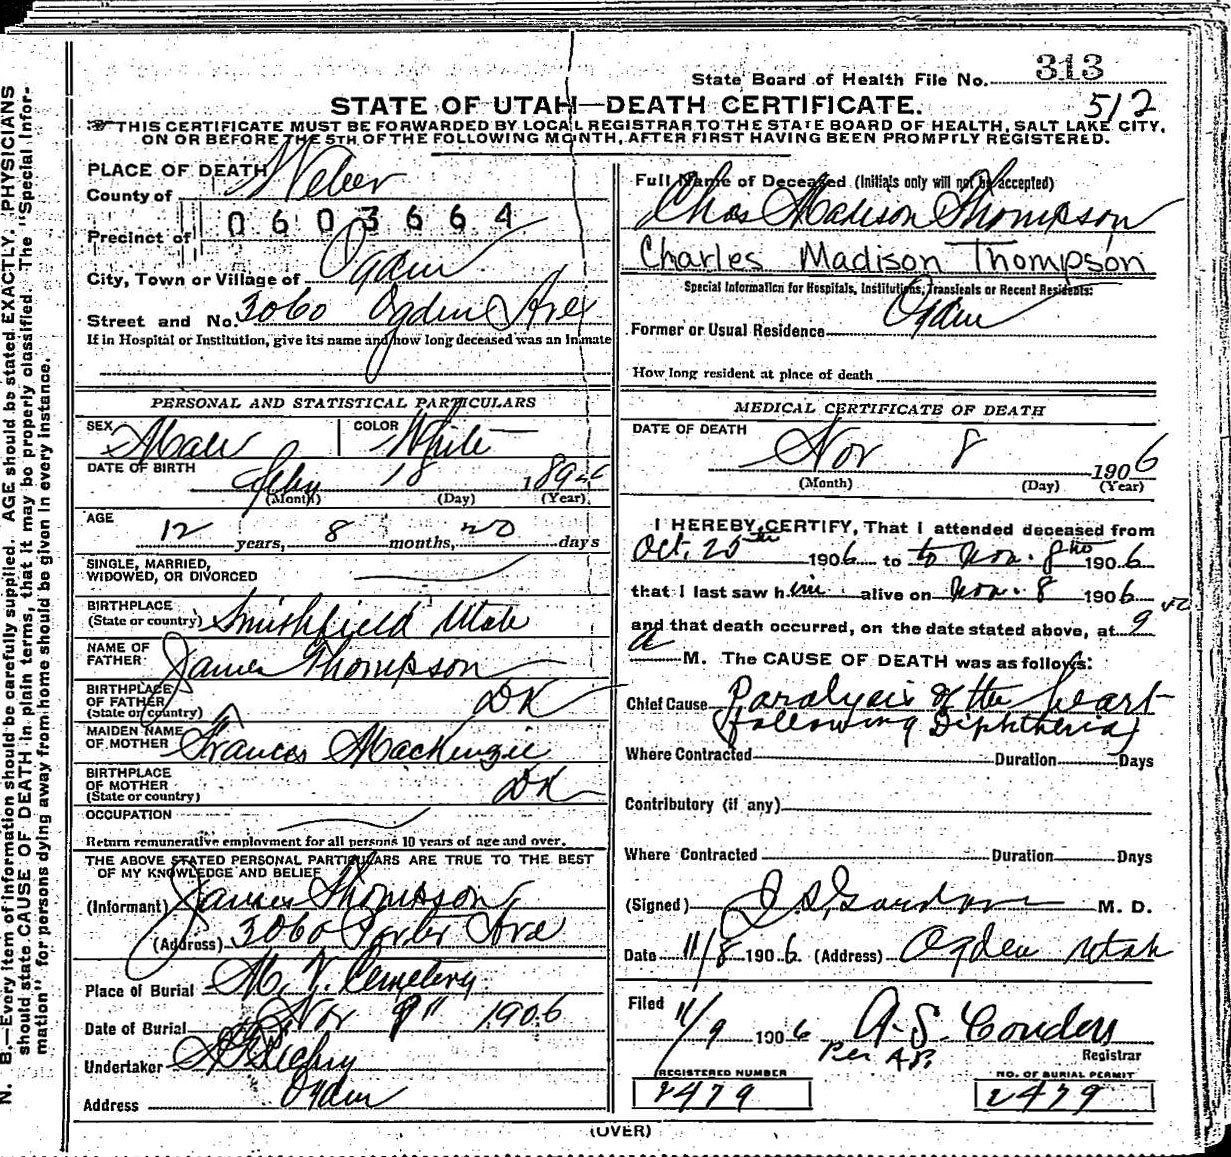 N. B.—Every item of information should be carefully supplied. AGE should be stated EXACTLY. PHYSICIANS
should state CAUSE OF DEATH in plain terms, that it may be properly classified. The "Special Infor-
mation" for persons dying away from home should be given in every instance.
State Board of Health File No. 313
STATE OF UTAH—DEATH CERTIFICATE. 512
THIS CERTIFICATE MUST BE FORWARDED BY LOCAL REGISTRAR TO THE STATE BOARD OF HEALTH, SALT LAKE CITY,
ON OR BEFORE THE 5TH OF THE FOLLOWING MONTH, AFTER FIRST HAVING BEEN PROMPTLY REGISTERED.
PLACE OF DEATH
County of Weber
0603664
Precinct of
City, Town or Village of Ogden
Street and No. 3060 Ogden Ave
If in Hospital or Institution, give its name and how long deceased was an Inmate
PERSONAL AND STATISTICAL PARTICULARS
SEX Male COLOR White
DATE OF BIRTH Feby 18 189
(Month) (Day) (Year)
AGE 12 years, 8 months, 20 days
SINGLE, MARRIED,
WIDOWED, OR DIVORCED
BIRTHPLACE
(State or country) Smithfield Utah
NAME OF
FATHER James Thompson
BIRTHPLACE
OF FATHER
(State or country) DK
MAIDEN NAME
OF MOTHER Frances MacKenzie
BIRTHPLACE
OF MOTHER
(State or country) DK
OCCUPATION
Return remunerative employment for all persons 10 years of age and over.
THE ABOVE STATED PERSONAL PARTICULARS ARE TRUE TO THE BEST
OF MY KNOWLEDGE AND BELIEF
(Informant) James Thompson
(Address) 3060 Porter Ave
Place of Burial M. V. Cemetery
Date of Burial Nov 9" 1906
Undertaker
Address Ogden
Full Name of Deceased (Initials only will not be accepted)
Chas Madison Thompson
Charles Madison Thompson
Special Information for Hospitals, Institutions, Transients or Recent Residents:
Former or Usual Residence Ogden
How long resident at place of death
MEDICAL CERTIFICATE OF DEATH
DATE OF DEATH
Nov 8 1906
(Month) (Day) (Year)
I HEREBY CERTIFY, That I attended deceased from
Oct. 25th 1906 to to Nov. 8 1906
that I last saw him alive on Nov. 8 1906
and that death occurred, on the date stated above, at 9
a M. The CAUSE OF DEATH was as follows:
Chief Cause Paralysis of the heart
following Diphtheria
Where Contracted Duration Days
Contributory (if any)
Where Contracted Duration Days
(Signed) M. D.
Date 11/8 1906 (Address) Ogden Utah
Filed 11/9 1906 A. S. Condon
Per A.P. Registrar
REGISTERED NUMBER NO. OF BURIAL PERMIT
2479 2479
(OVER)